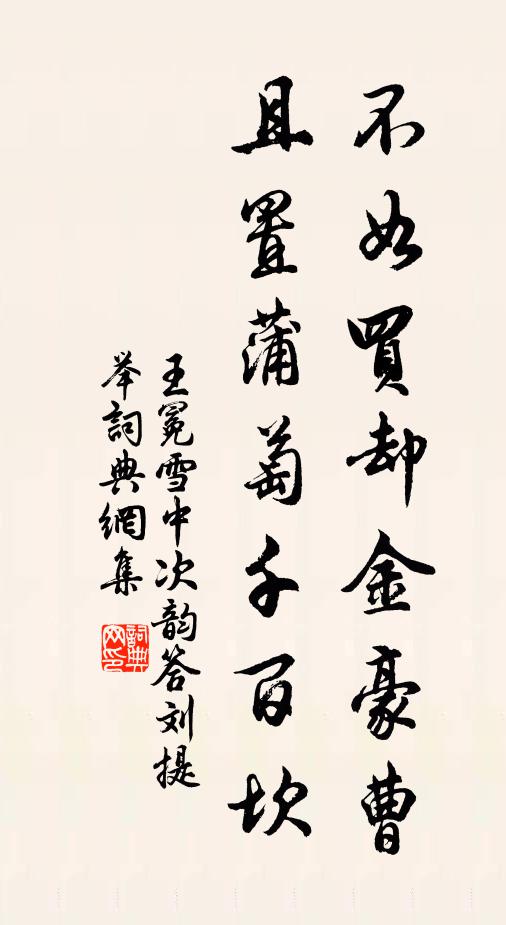 不如買却金豪曹
且置蒲萄千百坎
王冕雪中次韵答刘提
举詞典網集
詞典
网印